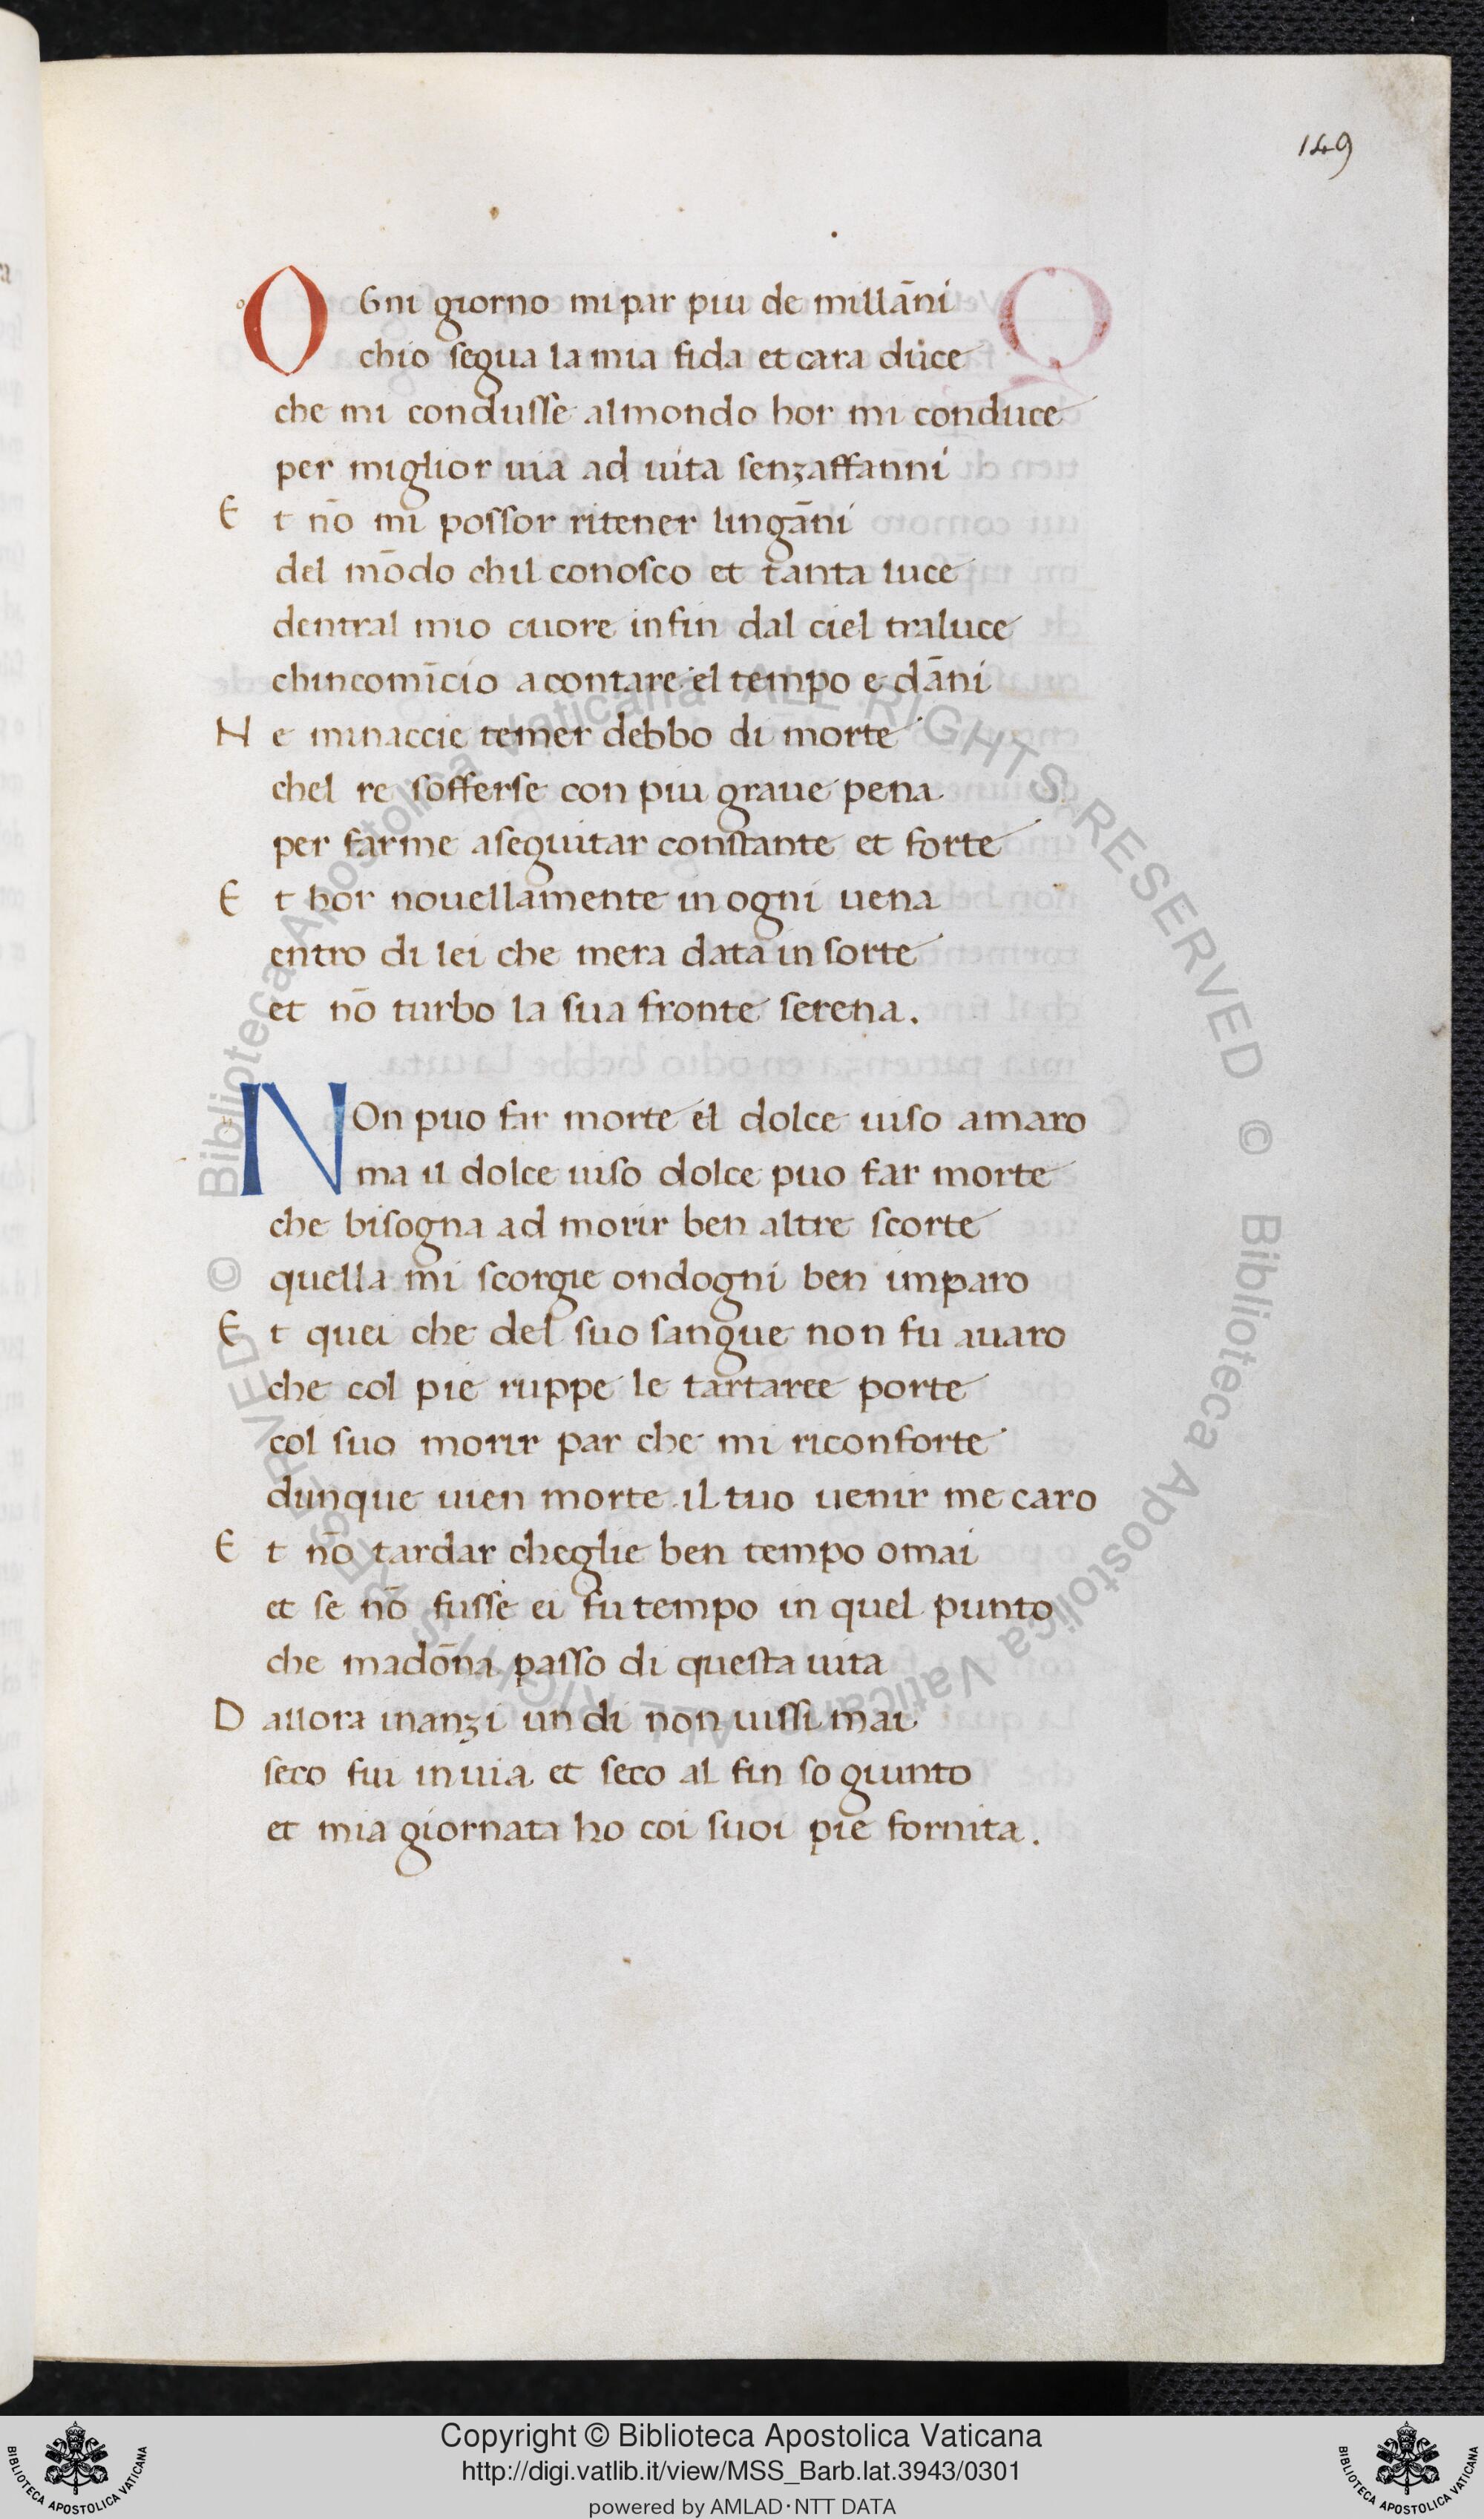 149
OGni giorno mi par piu de millāni
chio segua la mia fida et cara duce
che mi condusse al mondo hor mi conduce
per miglior uia ad uita senzaffanni
Et nō mi possor ritener lingāni
del mōdo chil conosco et tanta luce
dentral mio cuore infin dal ciel traluce
chincomīcio a contare el tempo e dāni
Ne minaccie temer debbo di morte
chel re sofferse con piu graue pena
per farme a seguitar constante et forte
Et hor nouellamente in ogni uena
entro di lei che mera data in sorte
et nō turbo la sua fronte serena.
NOn puo far morte el dolce uiso amaro
ma il dolce uiso dolce puo far morte
che bisogna ad morir ben altre scorte
quella mi scorgie ondogni ben imparo
Et quei che del suo sangue non fu auaro
che col pie ruppe le tartaree porte
col suo morir par che mi riconforte
dunque uien morte il tuo uenir me caro
Et nō tardar cheglie ben tempo omai
et se nō fusse ei fu tempo in quel punto
che madōna passo di questa uita
Dallora inanzi un di non uissi mai
seco fui in uia et seco al fin so giunto
et mia giornata ho coi suoi pie fornita.
© Biblioteca Apostolica Vaticana ALL RIGHTS RESERVED © Biblioteca Apostolica Vaticana ALL RIGHTS RESERVED
BIBLIOTECA APOSTOLICA VATICANA
Copyright © Biblioteca Apostolica Vaticana
http://digi.vatlib.it/view/MSS_Barb.lat.3943/0301
powered by AMLAD·NTT DATA
BIBLIOTECA APOSTOLICA VATICANA